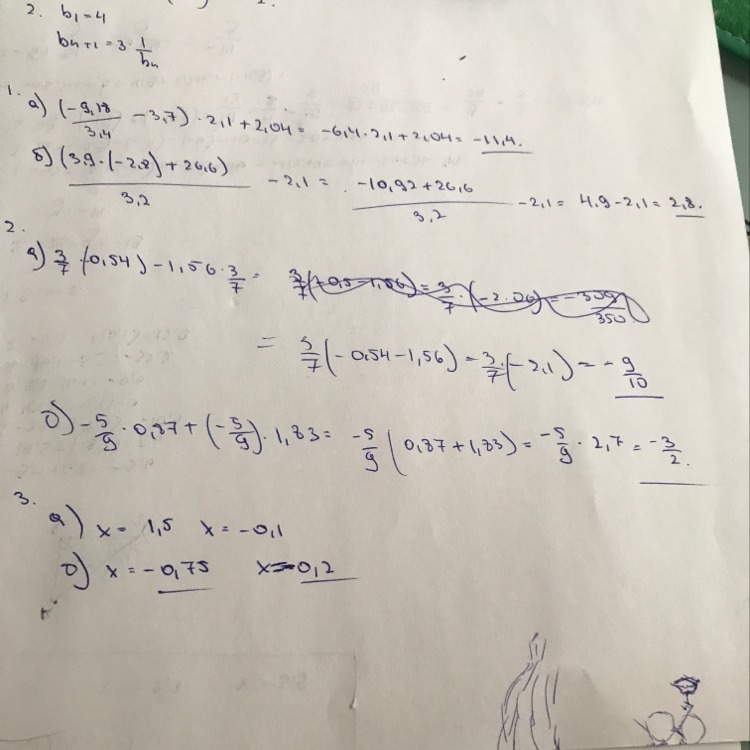 2. b₁=4
bₙ₊₁=3·1/bₙ
1.
а) (-9,18/3,4 -3,7)·2,1+2,04= -6,4·2,1+2,04= -11,4.
б) (3,9·(-2,8)+26,6)/3,2 -2,1= (-10,92+26,6)/3,2 -2,1= 4,9-2,1=2,8.
2.
а) 3/7·(-0,54)-1,56·3/7=
= 3/7(-0,54-1,56)=3/7·(-2,1)=-9/10
б) -5/9·0,87+(-5/9)·1,83= -5/9(0,87+1,83)=-5/9·2,7=-3/2.
3.
а) x= 1,5 x=-0,1
б) x=-0,75 x=0,2